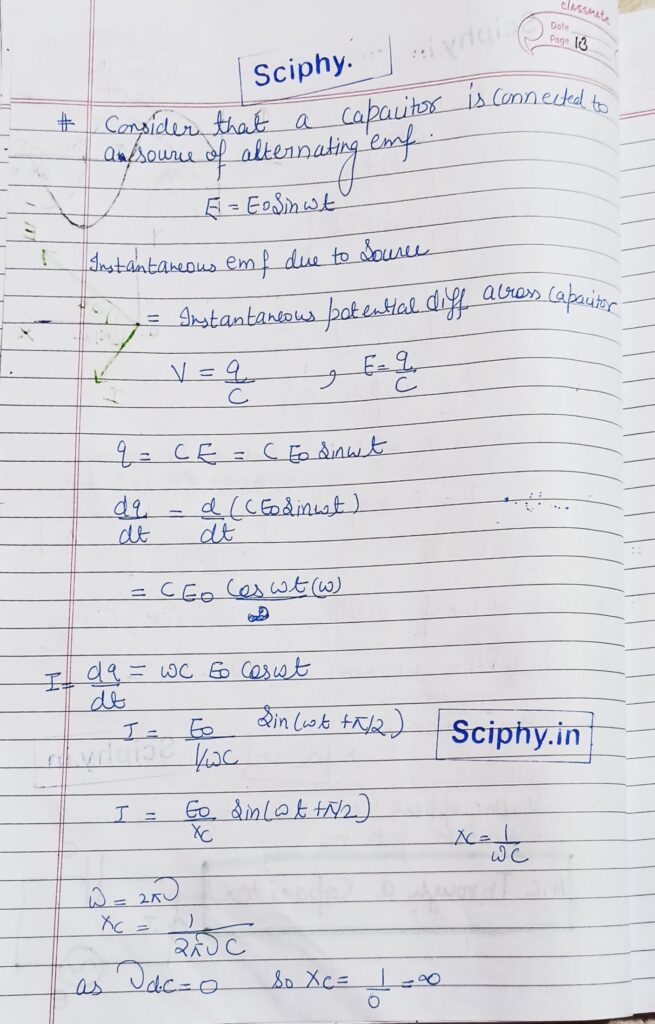 classmate
Date
Page 13
Sciphy.
# Consider that a capacitor is connected to
a source of alternating emf.
E = E0 Sin ωt
Instantaneous emf due to Source
= Instantaneous potential diff across capacitor
V = q/C , E = q/C
q = CE = C E0 Sin ωt
dq/dt = d/dt (C E0 Sin ωt)
= C E0 Cos ωt (ω)
I = dq/dt = ωC E0 Cos ωt
I = E0/(1/ωC) Sin (ωt + π/2)
Sciphy.in
I = E0/Xc Sin (ωt + π/2)
Xc = 1/ωC
ω = 2πν
Xc = 1/2πνC
as νdc = 0 So Xc = 1/0 = ∞